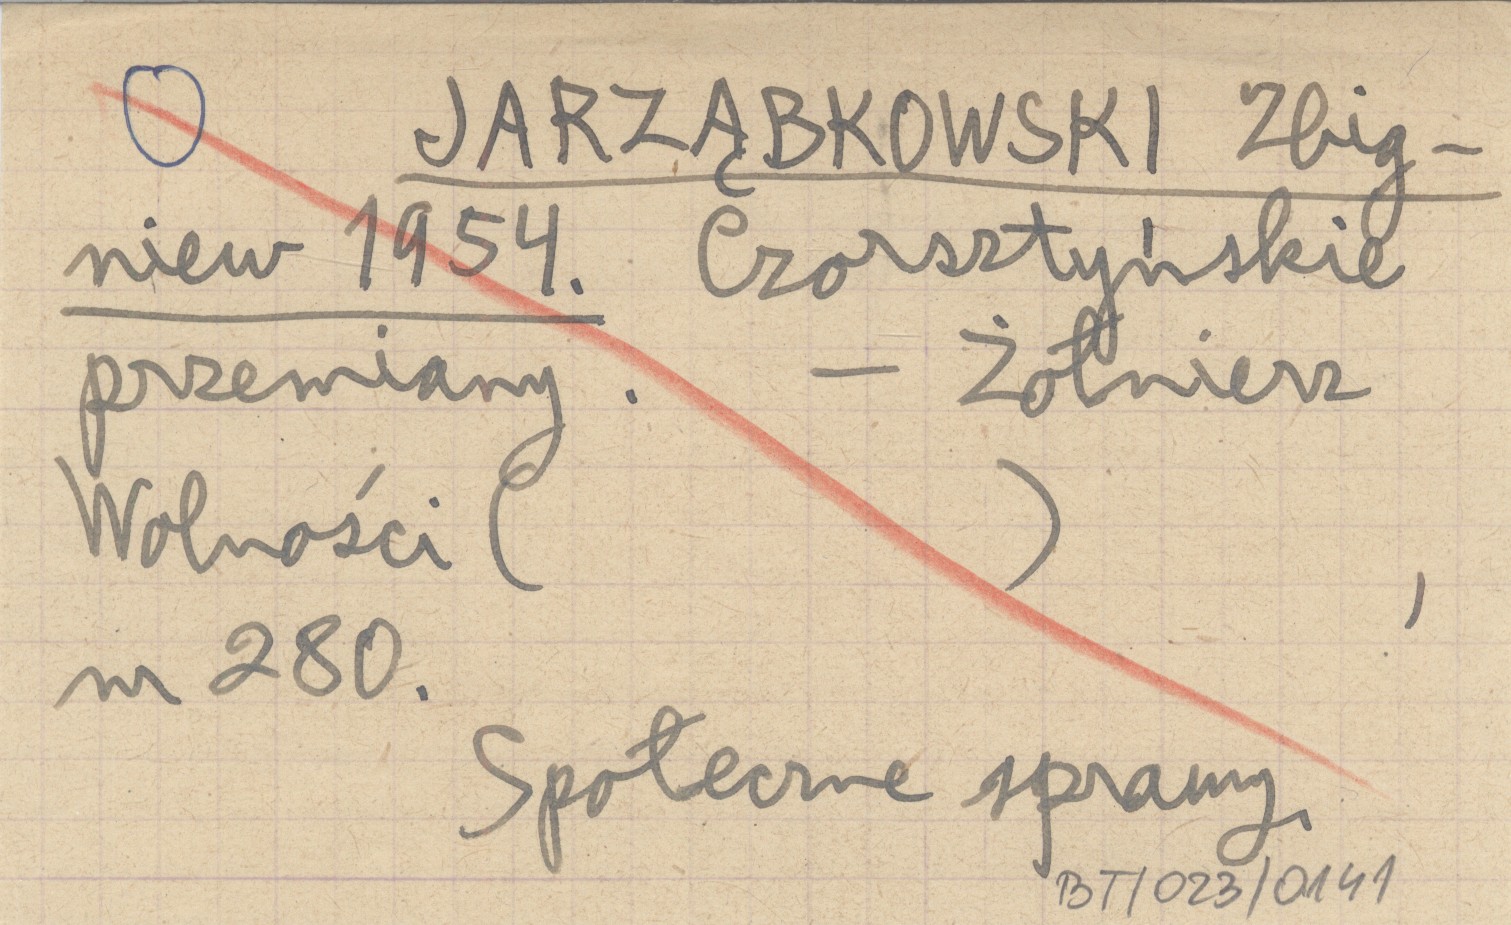 JARZĄBKOWSKI Zbig-
niew 1954. Czorsztyńskie
przemiany. — Żołnierz
Wolności ( ) ,
nr 280.
Społeczne sprawy,
BT/023/0141